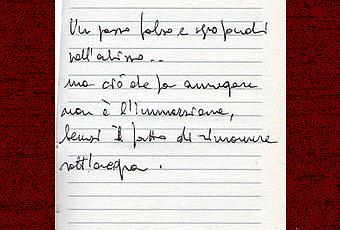 Un passo falso e sprofondi
nell'abisso..
ma ciò che fa annegare
non è l'immersione,
bensì il fatto di rimanere
sott'acqua.